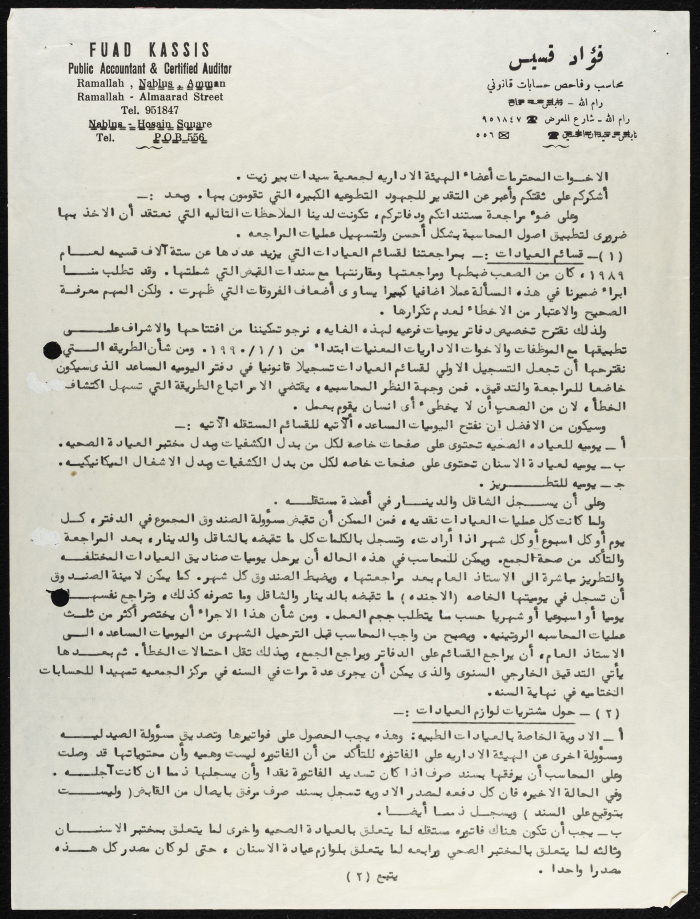 FUAD KASSIS
Public Accountant & Certified Auditor
Ramallah , Nablus , Amman
Ramallah - Almaarad Street
Tel. 951847
Nablus - Hosain Square
Tel. P.O.B 556
فؤاد قسيس
محاسب وفاحص حسابات قانوني
رام الله -
رام الله - شارع المعرض ☎ ٩٥١٨٤٧
☎ ✉ ٥٥٦
الاخوات المحترمات أعضاء الهيئة الاداريه لجمعية سيدات بير زيت .
أشكركم على ثقتكم وأعبر عن التقدير للجهود التطوعيه الكبيره التي تقومون بها. وبعد :ــ
وعلى ضوء مراجعة مستنداتكم ودفاتركم، تكونت لدينا الملاحظات التاليه التي نعتقد أن الاخذ بها
ضرورى لتطبيق اصول المحاسبة بشكل أحسن ولتسهيل عمليات المراجعه .
(١) ــ قسائم العيادات :ــ بمراجعتنا لقسائم العيادات التي يزيد عددها عن ستة آلاف قسيمه لعــام
١٩٨٩، كان من الصعب ضبطها ومراجعتها ومقارنتها مع سندات القبض التي شملتها. وقد تطلب منــا
ابراء ضميرنا في هذه المسألة عملا اضافيا كبيرا يساوى أضعاف الفروقات التي ظهرت . ولكن المهم معرفــة
الصحيح والاعتبار من الاخطاء لعدم تكرارها .
ولذلك نقترح تخصيص دفاتر يوميات فرعيه لهذه الغايه، نرجو تمكيننا من افتتاحها والاشراف علــى
تطبيقها مع الموظفات والاخوات الاداريات المعنيات ابتداء من ١٩٩٠/١/١. ومن شأن الطريقه الــتي
نقترحها أن تجعل التسجيل الاولي لقسائم العيادات تسجيلا قانونيا في دفتر اليوميه المساعد الذى سيكون
خاضعا للمراجعة والتدقيق. فمن وجهة النظر المحاسبيه، يقتضي الامر اتباع الطريقة التي تسهل اكتشاف
الخطأ، لان من الصعب أن لا يخطىء أى انسان يقوم بعمل.
وسيكون من الافضل ان نفتح اليوميات المساعده الآتيه للقسائم المستقله الآتيه :ــ
أ ــ يوميه للعياده الصحيه تحتوى على صفحات خاصه لكل من بدل الكشفيات وبدل مختبر العيادة الصحيه.
ب ــ يوميه لعيادة الاسنان تحتوى على صفحات خاصه لكل من بدل الكشفيات وبدل الاشغال الميكانيكيــه.
جـ ــ يوميه للتطــــريز .
وعلى أن يســجل الشاقل والدينــار في أعمدة مستقلــه .
ولما كانت كل عمليات العيادات نقديه، فمن الممكن أن تقبض مسؤولة الصندوق المجموع في الدفتر، كــل
يوم أو كل اسبوع أو كل شهر اذا أرادت، وتسجل بالكلمات كل ما تقبضه بالشاقل والدينار، بعد المراجعة
والتأكد من صحة الجمع. ويمكن للمحاسب في هذه الحاله أن يرحل يوميات صناديق العيادات المختلفــه
والتطريز مباشرة الى الاستاذ العام بعد مراجعتها، ويضبط الصندوق كل شهر. كما يمكن لامينة الصنــدوق
أن تسجل في يوميتها الخاصه (الاجنده) ما تقبضه بالدينار والشاقل وما تصرفه كذلك، وتراجع نفسهــا
يوميا أو اسبوعيا أو شهريا حسب ما يتطلب حجم العمل. ومن شأن هذا الاجراء أن يختصر أكثر من ثلــث
عمليات المحاسبه الروتينيه. ويصبح من واجب المحاسب قبل الترحيل الشهرى من اليوميات المساعده الــى
الاستاذ العام، أن يراجع القسائم على الدفاتر ويراجع الجمع، وبذلك تقل احتمالات الخطأ. ثم بعــدها
يأتي التدقيق الخارجي السنوى والذى يمكن أن يجرى عدة مرات في السنه في مركز الجمعيه تمهيدا للحسابات
الختاميه في نهاية السنه.
(٢) ــ حول مشتريات لوازم العيادات :ــ
أ ــ الادوية الخاصة بالعيادات الطبيه: وهذه يجب الحصول على فواتيرها وتصديق مسؤولة الصيدليــه
ومسؤولة اخرى عن الهيئة الاداريه على الفاتوره للتأكد من أن الفاتوره ليست وهميه وأن محتوياتها قد وصلت
وعلى المحاسب أن يرفقها بسند صرف اذا كان تسديد الفاتورة نقدا وأن يسجلها ذمما ان كانت آجلــه .
وفي الحالة الاخيره فان كل دفعه لمصدر الادويه تسجل بسند صرف مرفق بايصال من القابض (وليســت
بتوقيع على السند) ويسجل ذممــا أيضــا.
ب ــ يجب أن تكون هناك فاتوره مستقله لما يتعلق بالعيادة الصحيه واخرى لما يتعلق بمختبر الاسنــان
وثالثه لما يتعلق بالمختبر الصحي ورابعه لما يتعلق بلوازم عيادة الاسنان ، حتى لو كان مصدر كل هــذه
مصدرا واحدا .
يتبع (٢)